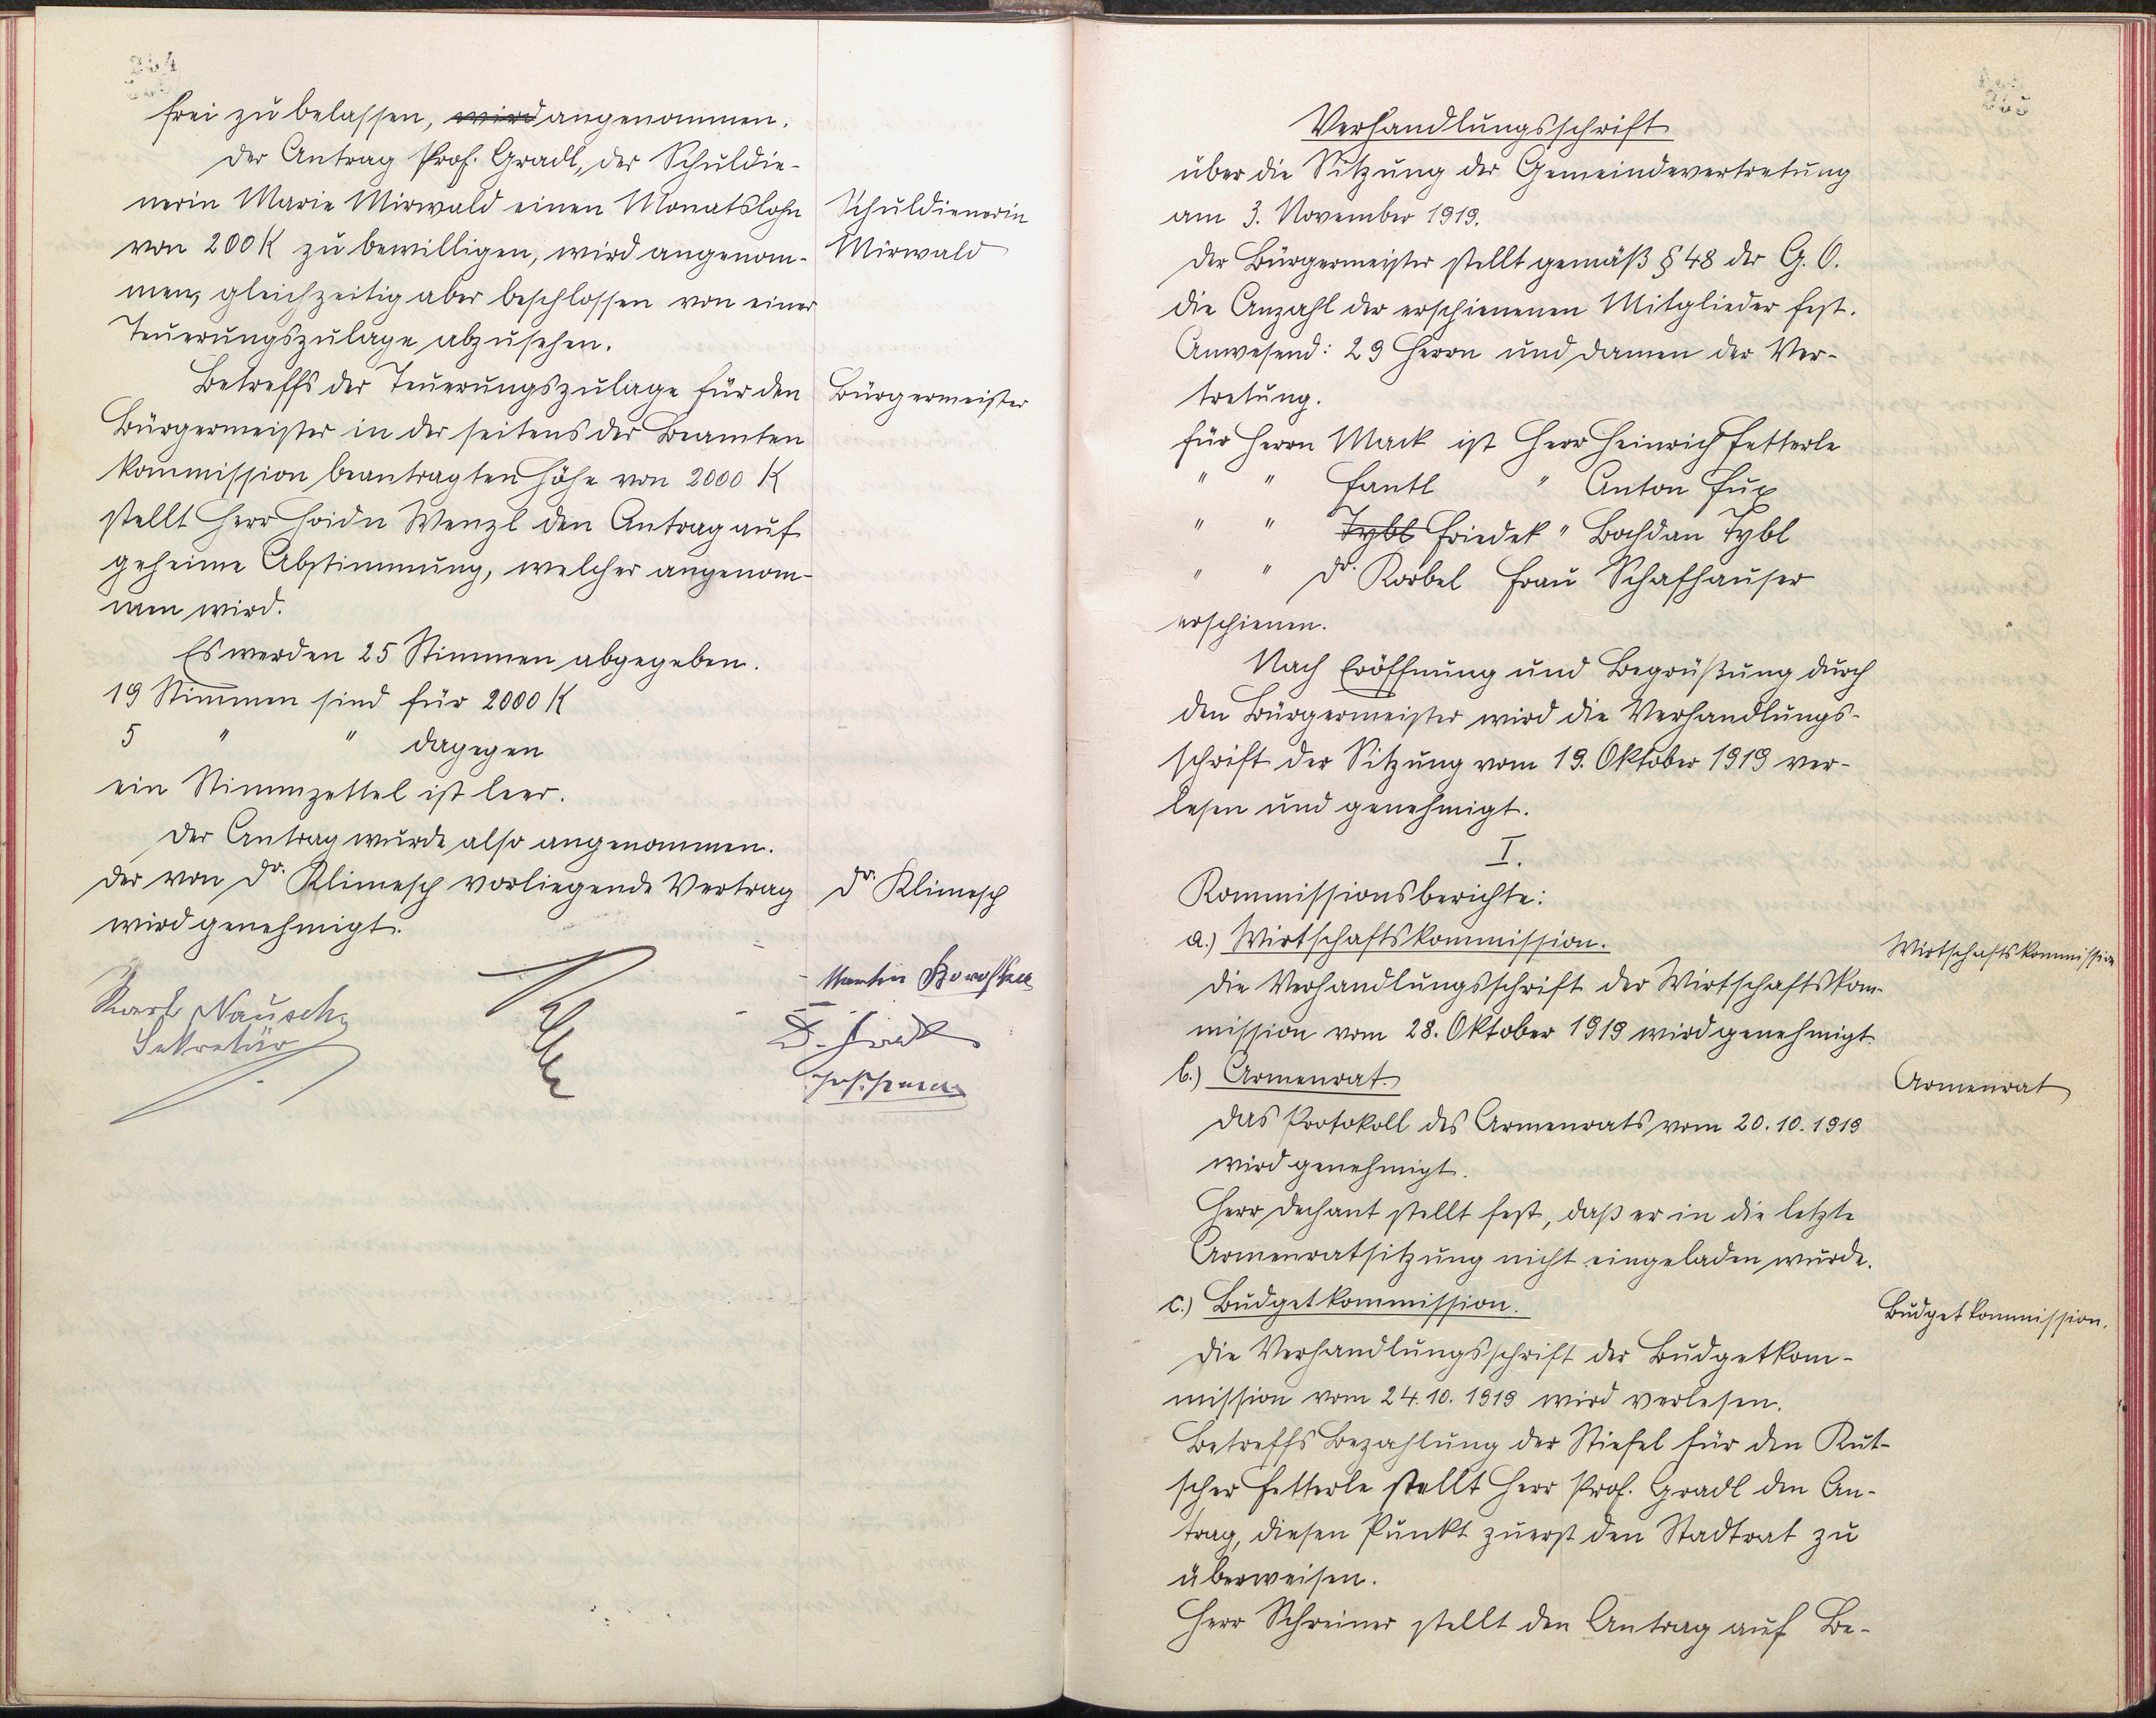 264
frei zu belassen, wird angenommen.
Der Antrag Prof. Gradl, der Schuldie-
nerin Marie Mirwald einen Monatslohn
von 200 K zu bewilligen, wird angenom-
men, gleichzeitig aber beschlossen von einer
Teuerungszulage abzusehen.
Schuldienerin
Mirwald
Betreffs der Teuerungszulage für den
Bürgermeister in der seitens der Beamten
kommission beantragten Höhe von 2000 K
stellt Herr Hoidn Wenzl den Antrag auf
geheime Abstimmung, welcher angenom-
men wird.
Bürgermeister
Es werden 25 Stimmen abgegeben.
19 Stimmen sind für 2000 K
5 " " dagegen
ein Stimmzettel ist leer.
Der Antrag wurde also angenommen.
Der von Dr. Klimesch vorliegende Vertrag
wird genehmigt.
Dr. Klimesch
Karl Nausch
Sekretär
Martin
265
Verhandlungsschrift
über die Sitzung der Gemeindevertretung
am 3. November 1919.
Der Bürgermeister stellt gemäß § 48 der G. O.
die Anzahl der erschienenen Mitglieder fest.
Anwesend: 29 Herrn und Damen der Ver-
tretung.
Für Herrn Mack ist Herr Heinrich Fetterle
" " Fantl " Anton Fux
" " Tybl Friedek " Bochdan Tybl
" " Dr. Korbel Frau Schafhauser
erschienen.
Nach Eröffnung und Begrüßung durch
den Bürgermeister wird die Verhandlungs-
schrift der Sitzung vom 19. Oktober 1919 ver-
lesen und genehmigt.
I.
Kommissionsberichte:
a.) Wirtschaftskommission.
Wirtschaftskommission
Die Verhandlungsschrift der Wirtschaftskom-
mission vom 28. Oktober 1919 wird genehmigt.
b.) Armenrat.
Armenrat
Das Protokoll des Armenrats vom 20. 10. 1919
wird genehmigt.
Herr Dechant stellt fest, daß er in die letzte
Armenratsitzung nicht eingeladen wurde.
c.) Budgetkommission.
Budgetkommission.
Die Verhandlungsschrift der Budgetkom-
mission vom 24. 10. 1919 wird verlesen.
Betreffs Bezahlung der Stiefel für den Kut-
scher Fetterle stellt Herr Prof. Gradl den An-
trag, diesen Punkt zuerst den Stadtrat zu
überweisen.
Herr Schreiner stellt den Antrag auf Be-